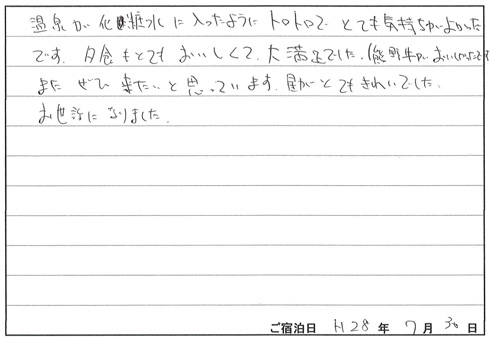 温泉が化粧水に入ったようにトロトロで とても気持ちがよかった
です。夕食もとてもおいしくて、大満足でした。(熊野牛がおいしかったです
またぜひ来たいと思っています。星がとてもきれいでした。
お世話になりました。
ご宿泊日 H28年 7月 30日